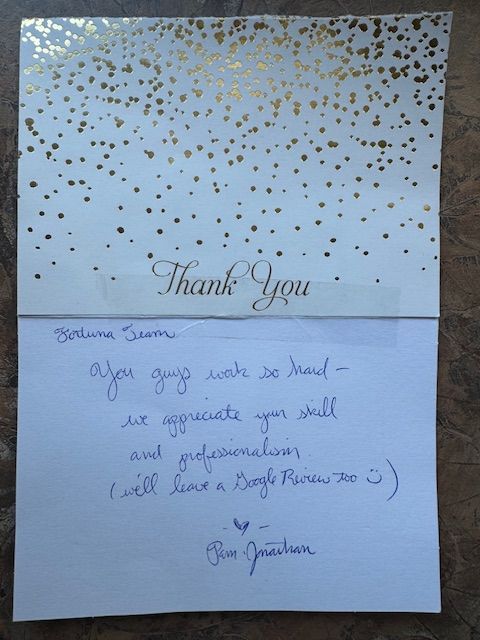 Thank You
Fortuna Team
You guys work so hard –
we appreciate your skill
and professionalism.
(we'll leave a Google Review too ☺)
- ♡ -
Pam · Jonathan